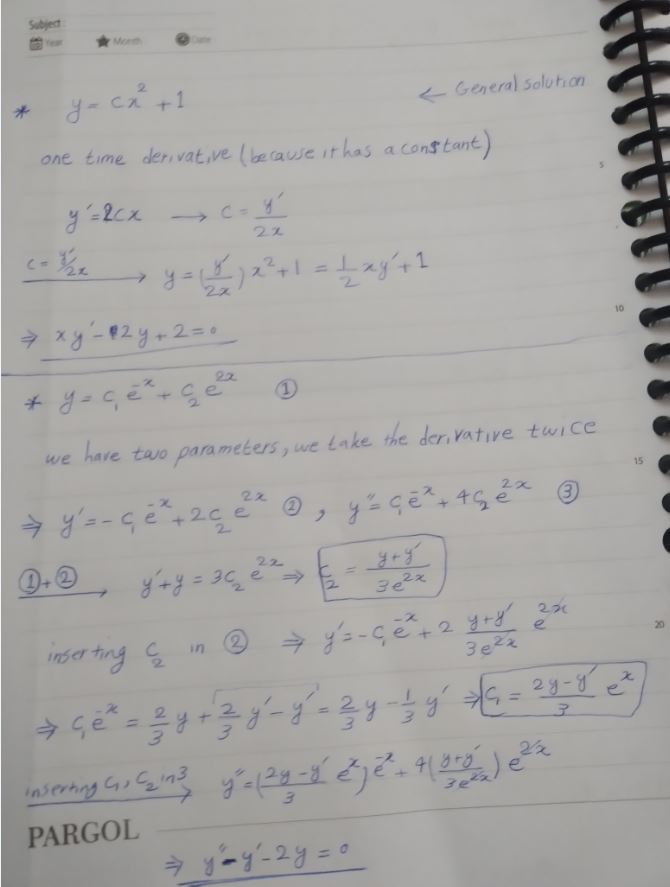 Subject:
Year Month Date
* y = cx² + 1 ← General solution
one time derivative (because it has a constant)
y' = 2cx → c = y'/2x
c = y'/2x → y = (y'/2x) x² + 1 = 1/2 xy' + 1
⇒ xy' - 2y + 2 = 0
* y = c₁e⁻ˣ + c₂e²ˣ ①
we have two parameters, we take the derivative twice
⇒ y' = -c₁e⁻ˣ + 2c₂e²ˣ ②, y'' = c₁e⁻ˣ + 4c₂e²ˣ ③
①+② → y' + y = 3c₂e²ˣ ⇒ c₂ = y+y'/3e²ˣ
inserting c₂ in ② ⇒ y' = -c₁e⁻ˣ + 2 y+y'/3e²ˣ e²ˣ
⇒ c₁e⁻ˣ = 2/3 y + 2/3 y' - y' = 2/3 y - 1/3 y' ⇒ c₁ = 2y-y'/3 eˣ
inserting c₁, c₂ in 3 → y'' = (2y-y'/3 eˣ)e⁻ˣ + 4(y+y'/3e²ˣ) e²ˣ
⇒ y'' - y' - 2y = 0
PARGOL
5
10
15
20